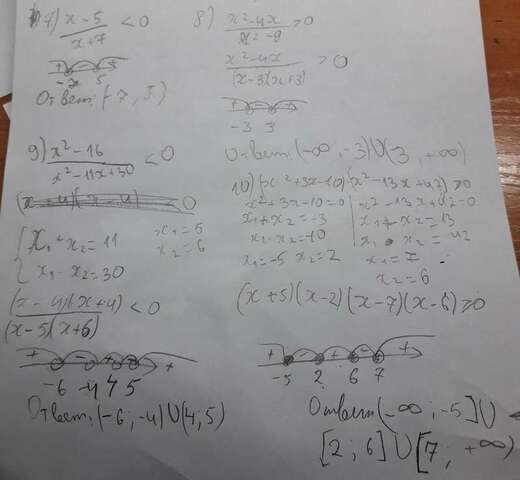 7) x - 5 / x + 7 < 0
+ - +
-7 5
Ответ: (-7, 5)
8) x² - 4x / x² - 9 > 0
x² - 4x / (x-3)(x+3) > 0
-3 3
Ответ: (-∞, -3) U (3, +∞)
9) x² - 16 / x² - 11x + 30 < 0
< 0
x₁ + x₂ = 11
x₁ · x₂ = 30
x₁ = 5
x₂ = 6
(x - 4)(x + 4) / (x - 5)(x + 6) < 0
+ - + - +
-6 -4 4 5
Ответ: (-6, -4) U (4, 5)
10) (x² + 3x - 10)(x² - 13x + 42) ≥ 0
x² + 3x - 10 = 0
x₁ + x₂ = -3
x₁ · x₂ = -10
x₁ = -5 x₂ = 2
x² - 13x + 42 = 0
x₁ + x₂ = 13
x₁ · x₂ = 42
x₁ = 7
x₂ = 6
(x + 5)(x - 2)(x - 7)(x - 6) ≥ 0
+ - + - +
-5 2 6 7
Ответ (-∞; -5] U
[2; 6] U [7, +∞)